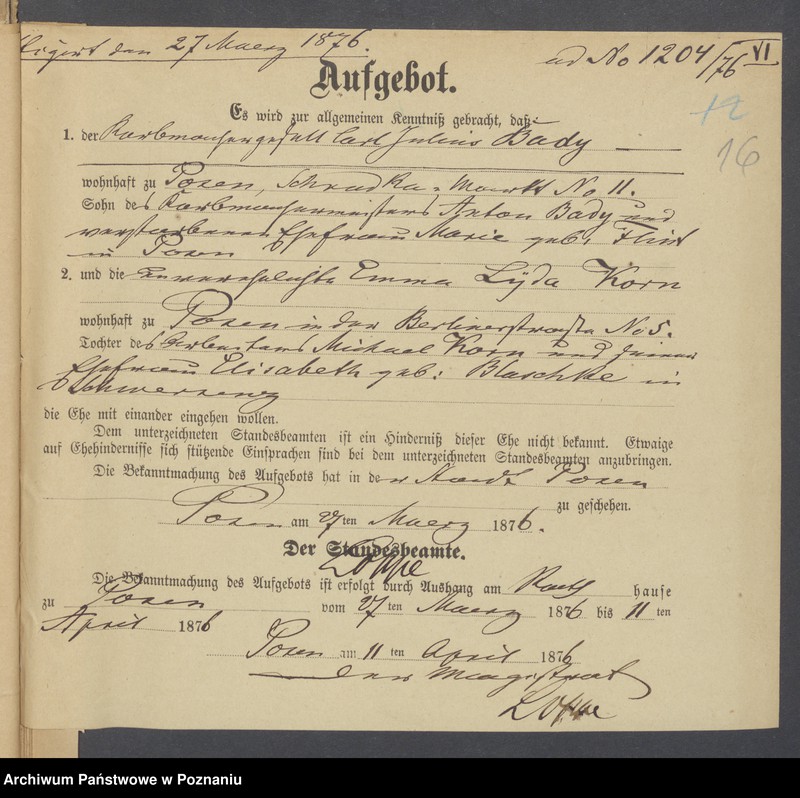 den 27 Maerz 1876.
ad No 1204/76 VI
12
16
Aufgebot.
Es wird zur allgemeinen Kenntniß gebracht, daß
1. der Korbmachergesell Carl Julius Bady
wohnhaft zu Posen, Schrudka-Markt No 11.
Sohn des Korbmachermeisters Anton Bady und
verstorbenen Ehefrau Marie geb.
in Posen
2. und die unverehelichte Emma Lyda Korn
wohnhaft zu Posen in der Berlinerstraße No 5.
Tochter des Arbeiters Michael Korn und seiner
Ehefrau Elisabeth geb: Blaschke in
Schwersenz
die Ehe mit einander eingehen wollen.
Dem unterzeichneten Standesbeamten ist ein Hinderniß dieser Ehe nicht bekannt. Etwaige
auf Ehehindernisse sich stützende Einsprachen sind bei dem unterzeichneten Standesbeamten anzubringen.
Die Bekanntmachung des Aufgebots hat in der Stadt Posen
zu geschehen.
Posen am 27ten Maerz 1876.
Der Standesbeamte.
Die Bekanntmachung des Aufgebots ist erfolgt durch Aushang am Rath hause
zu Posen vom 27ten Maerz 1876 bis 11ten
April 1876
Posen am 11ten April 1876
Der Magistrat
Archiwum Państwowe w Poznaniu